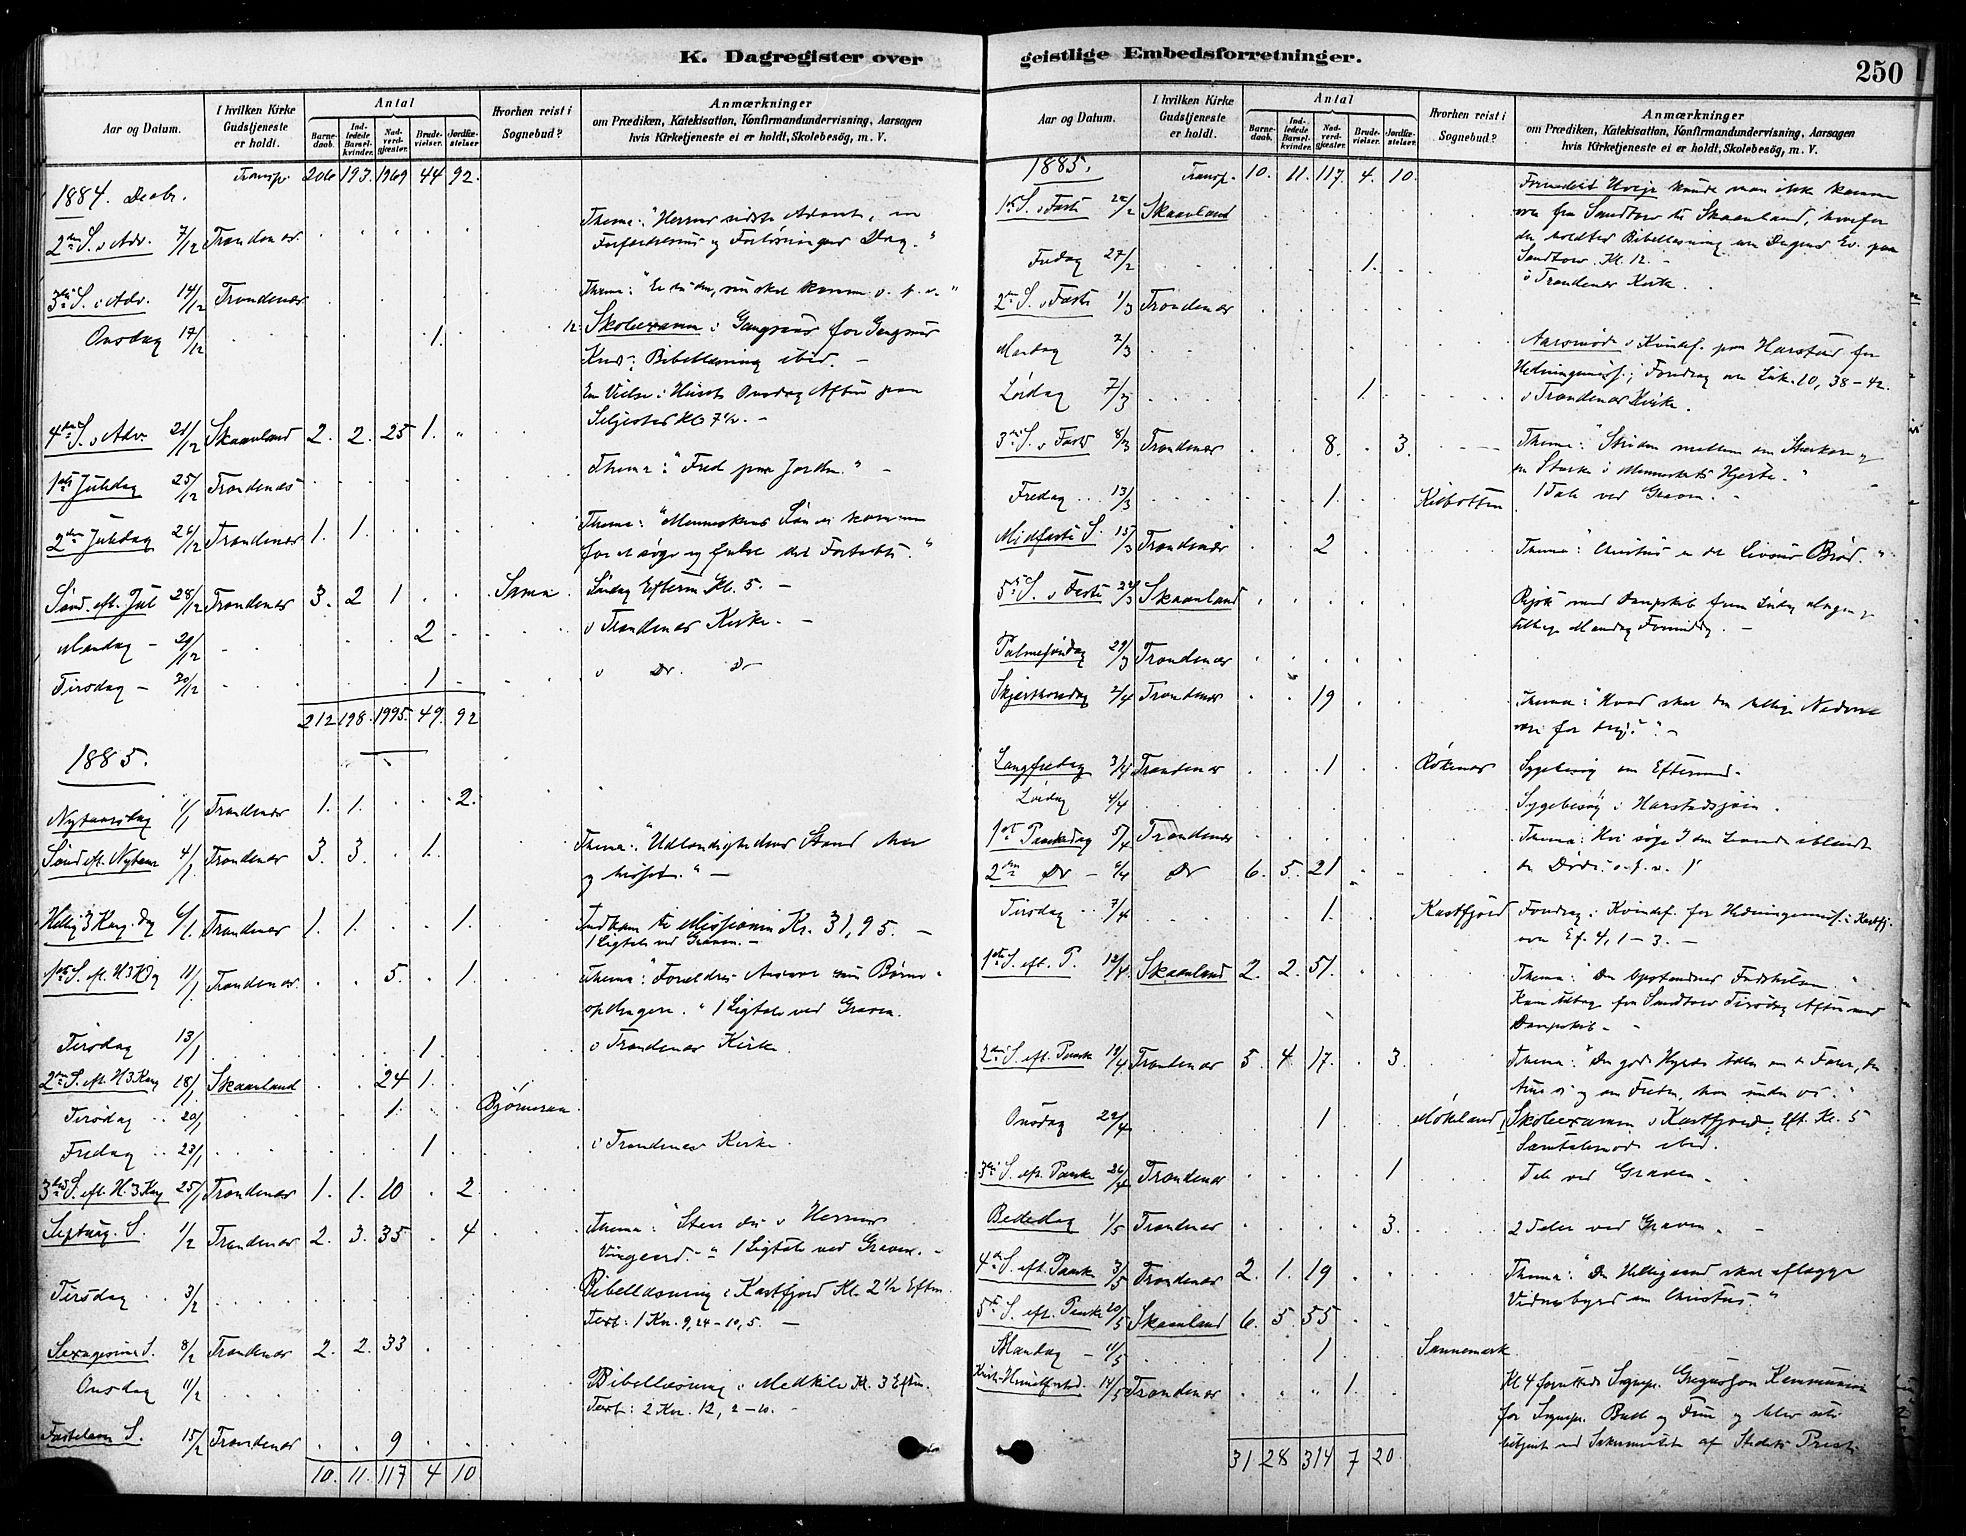 K. Dagregister over
Aar og Datum.
I hvilken Kirke Gudstjeneste er holdt.
Antal
Barnedaab.
Indledede Barselkvinder.
Nadverdgjæster.
Brudevielser.
Jordfæstelser
Hvorhen reist i Sognebud?
Anmærkninger
om Prædiken, Katekisation, Konfirmandundervisning, Aarsagen
hvis Kirketjeneste ei er holdt, Skolebesög, m. V.
Transp. 206 193. 1969 44 92.
1884. Decbr.
2den S. i Adv. 7/12 Trondenæs. Thema: "Herrens sidste Advent, en
Forfærdelsens og Forløsningens Dag."
3die S. i Adv. 14/12 Trondenæs. Thema: "Er du den, som skal komme o. s. v."
Onsdag 17/12 1. 12. Skoleexamen i Gangsaas for Gangsaas
Kreds; Bibellæsning ibid. –
En Vielse i Huset Onsdag Aften paa
Seljestad Kl 7½. –
4de S. i Adv. 21/12 Skaanland 2. 2. 25 1. "
1ste Juledag 25/12 Trondenæs Thema: "Fred paa Jorden." –
2den Juledag 26/12 Trondenæs 1. 1. Thema: "Menneskens Søn er kommen
for at søge og frelse det Fortabte."
Sønd. eft. Jul 28/12 Trondenæs 3. 2 1 Sama Søndag Efterm Kl. 5. –
Mandag – 29/12 2 i Trondenæs Kirke. –
Tirsdag – 30/12 1 i Do. Do
212 198. 1995. 49. 92
1885.
Nytaarsdag 1/1 Trondenæs 1. 1. 2.
Sønd eft. Nytaar 4/1 Trondenæs 3. 3. 1. Thema: "Udlændighedens Stand her
og hisset." –
Hellig 3 Kong. Dag 6/1. Trondenæs 1. 1. 1. Indkom til Missionen Kr. 31,95. –
1 Ligtale ved Graven. –
1ste S. eft. H3KDg 11/1. Trondenæs. 5. 1. Thema: "Forældres Ansvar som Børne-
opdragere." 1 Ligtale ved Graven.
Tirsdag 13/1 1. i Trondenæs Kirke.
2den S. eft. H3Kong 18/1. Skaanland 24 1.
Tirsdag 20/1 1. Bjørneraa
Fredag 23/1 1 i Trondenæs Kirke.
3die S. eft. H.3Kong 25/1 Trondenæs 1. 1. 10 2.
Septuag. S. 1/2 Trondenæs 2. 3. 35 4 Thema: "Sten der i Herrens
Vingaard." 1 Ligtale ved Graven. –
Tirsdag 3/2 Bibellæsning i Kastfjord Kl. 2½ Eftm.
Text: 1 Kor. 9,24–10,5. –
Sexagesima S. 8/2 Trondenæs 2. 2. 33
Onsdag 11/2 Bibellæsning i Medkila Kl. 3 Eftm.
Text: 2 Kor. 12, 2–10. –
Fastelavns S. 15/2 Trondenæs 9
10. 11. 117 4 10
geistlige Embedsforretninger.
250
Aar og Datum.
I hvilken Kirke Gudstjeneste er holdt.
Antal
Barnedaab.
Indledede Barselkvinder.
Nadverdgjæster.
Brudevielser.
Jordfæstelser.
Hvorhen reist i Sognebud?
Anmærkninger
om Prædiken, Katekisation, Konfirmandundervisning, Aarsagen
hvis Kirketjeneste ei er holdt, Skolebesög, m. V.
1885. Transp. 10. 11. 117. 4. 10.
1ste S. i Faste 22/2 Skaanland Formedelst Uveir kunde man ikke komme
fra Sandtorv til Skaanland, hvorfor
der holdtes Bibellæsning over Dagens Ev. paa
Sandtorv Kl. 12. –
Fredag 27/2 1. i Trondenæs Kirke.
2den S. i Faste 1/3 Trondenæs
Mandag 2/3 Aarsmøde i Kvindef. paa Harstad for
Hedningemiss.; Foredrag over Luk. 10, 38–42.
Lørdag 7/3 1. i Trondenæs Kirke.
3die S. i Faste 8/3 Trondenæs 8. 3. Thema: "Striden mellem en Stærkere og
en Stærk i Menneskets Hjerte."
1 Tale ved Graven. –
Fredag 13/3 1. Kilbotten
Midfaste S. 15/3 Trondenæs 2 Thema: "Christus er det Livsens Brød."
5te S. i Faste 22/3 Skaanland Reiste med Dampskib Lørdag Morgen og
tilbage Mandag Formiddag. –
Palmesøndag 29/3 Trondenæs
Skjærthorsdag 2/4 Trondenæs 19 Thema: "Hvad skal den hellige Nadvere
være for dig?" –
Langfredag 3/4 Trondenæs 1 Røkenæs Sygebesøg om Eftermid.
Lørdag 4/4 Sygebesøg i Harstadsjøen.
1ste Paaskedag 5/4 Trondenæs Thema: Hvi søge I den Levende iblandt
de Døde o. s. v. ?
2den Do – 6/4 Do 6. 5. 21
Tirsdag 7/4 1. Kastfjord Foredrag i Kvindef. for Hedningemiss. i Kastfj.
over Ef. 4, 1–3. –
1ste S. eft. P. 12/4. Skaanland 2. 2. 51. Thema: "Den Opstandnes Fredshilsen."
Kom tilbage fra Sandtorv Tirsdag Aften med
Dampskib. –
2den S. eft. Paaske 19/4 Trondenæs 5. 4. 17. 3. Thema: "Den gode Hyrde
Onsdag 22/4 1 Møkeland Skoleexamen i Kastfjord; Eft. Kl. 5
Samtalemøde ibid.
3die S. eft. Paaske 26/4 Trondenæs 1 Tale ved Graven.
Bededag 1/5 Trondenæs 3. 2 Taler ved Graven.
4de S. eft. Paaske 3/5 Trondenæs 2. 1. 19 Thema: "Den Helligaand skal aflægge
Vidnesbyrd om Christus."
5te S. eft. Paaske 10/5 Skaanland 6. 5. 55
Mandag – 11/5 1 Sannemark
Kristi Himmelfartsd. 14/5 Trondenæs 1. Kl 4 forrettede Sognepr. Gregussen Kommunion
for Sognepr. Buch og Frue og blev selv
betjent med Sakramentet af Stedets Præst.
31 28 314 7 20.